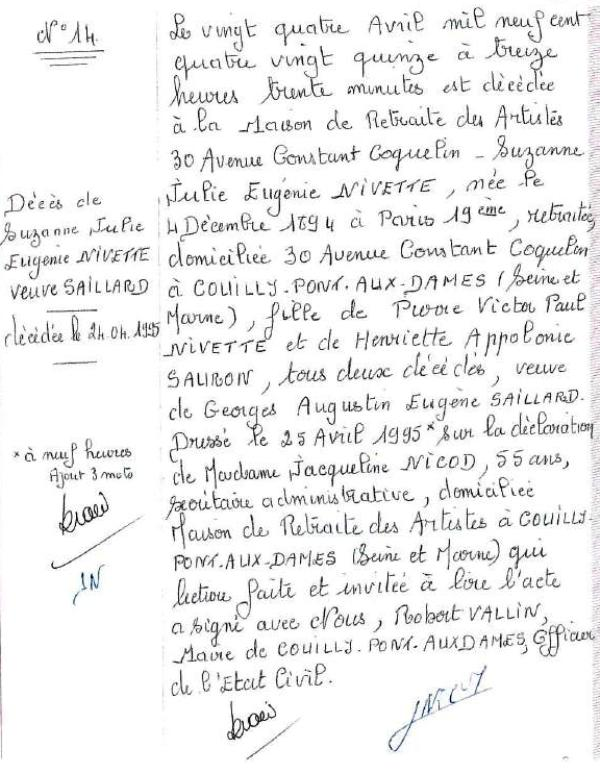 N° 14.
Décès de
Suzanne Julie
Eugénie NIVETTE
veuve SAILLARD
décédée le 24.04.1995
* à neuf heures
Ajout 3 mots
JN
Le vingt quatre Avril mil neuf cent
quatre vingt quinze à treize
heures trente minutes est décédée
à la Maison de Retraite des Artistes
30 Avenue Constant Coquelin - Suzanne
Julie Eugénie NIVETTE, née le
4 Décembre 1894 à Paris 19ème, retraitée,
domiciliée 30 Avenue Constant Coquelin
à COUILLY-PONT-AUX-DAMES (Seine et
Marne), fille de Pierre Victor Paul
NIVETTE et de Henriette Appolonie
SAURON, tous deux décédés, veuve
de Georges Augustin Eugène SAILLARD.
Dressé le 25 Avril 1995* sur la déclaration
de Madame Jacqueline NICOD, 55 ans,
Secrétaire administrative, domiciliée
Maison de Retraite des Artistes à COUILLY-
PONT-AUX-DAMES (Seine et Marne) qui
lecture faite et invitée à lire l'acte
a signé avec Nous, Robert VALLIN,
Maire de COUILLY-PONT-AUX DAMES, Officier
de l'Etat Civil.